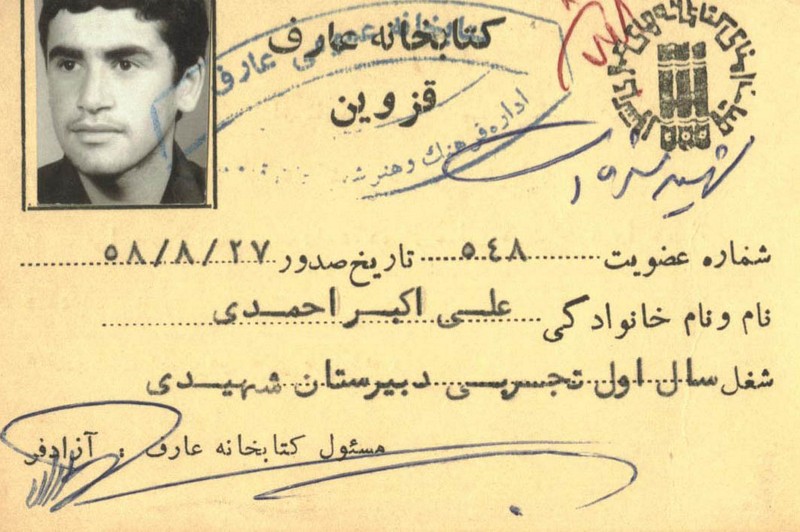 کتابخانه عارف
قزوین
اداره فرهنگ و هنر شه
شماره عضویت ۵۴۸ تاریخ صدور ۵۸/۸/۲۷
نام و نام خانوادگی علی اکبر احمدی
شغل سال اول تجربی دبیرستان شهیدی
مسئول کتابخانه عارف : آزادفر